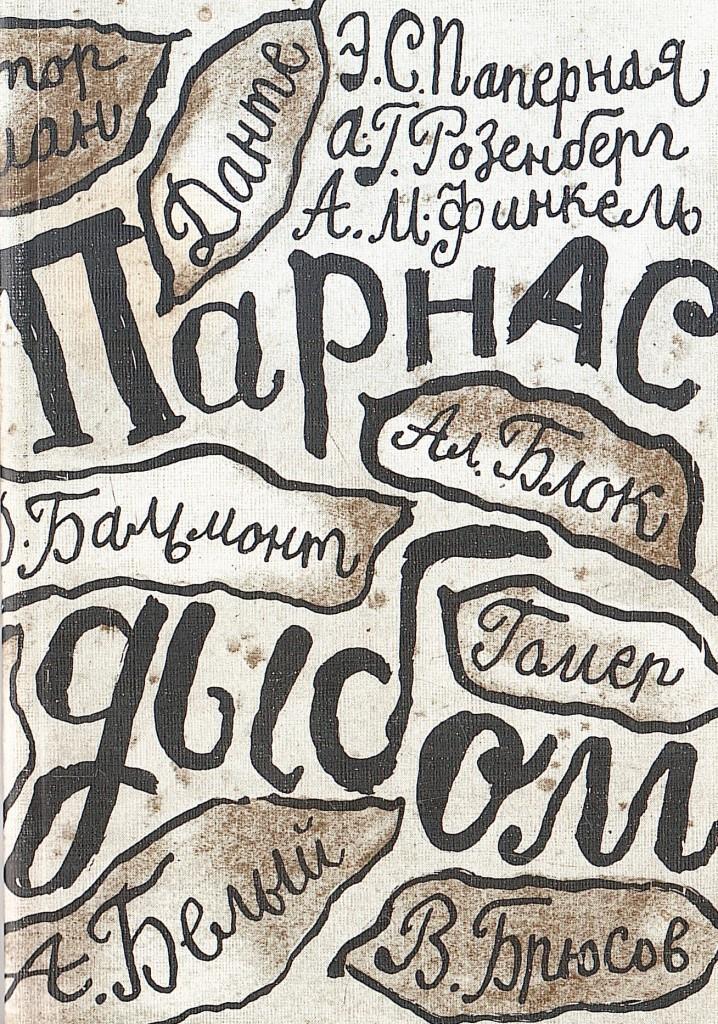 Э. С. Паперная
А. Г. Розенберг
А. М. Финкель
Данте
Парнас
Ал. Блок
Бальмонт
дыбом
Гомер
А. Белый
В. Брюсов